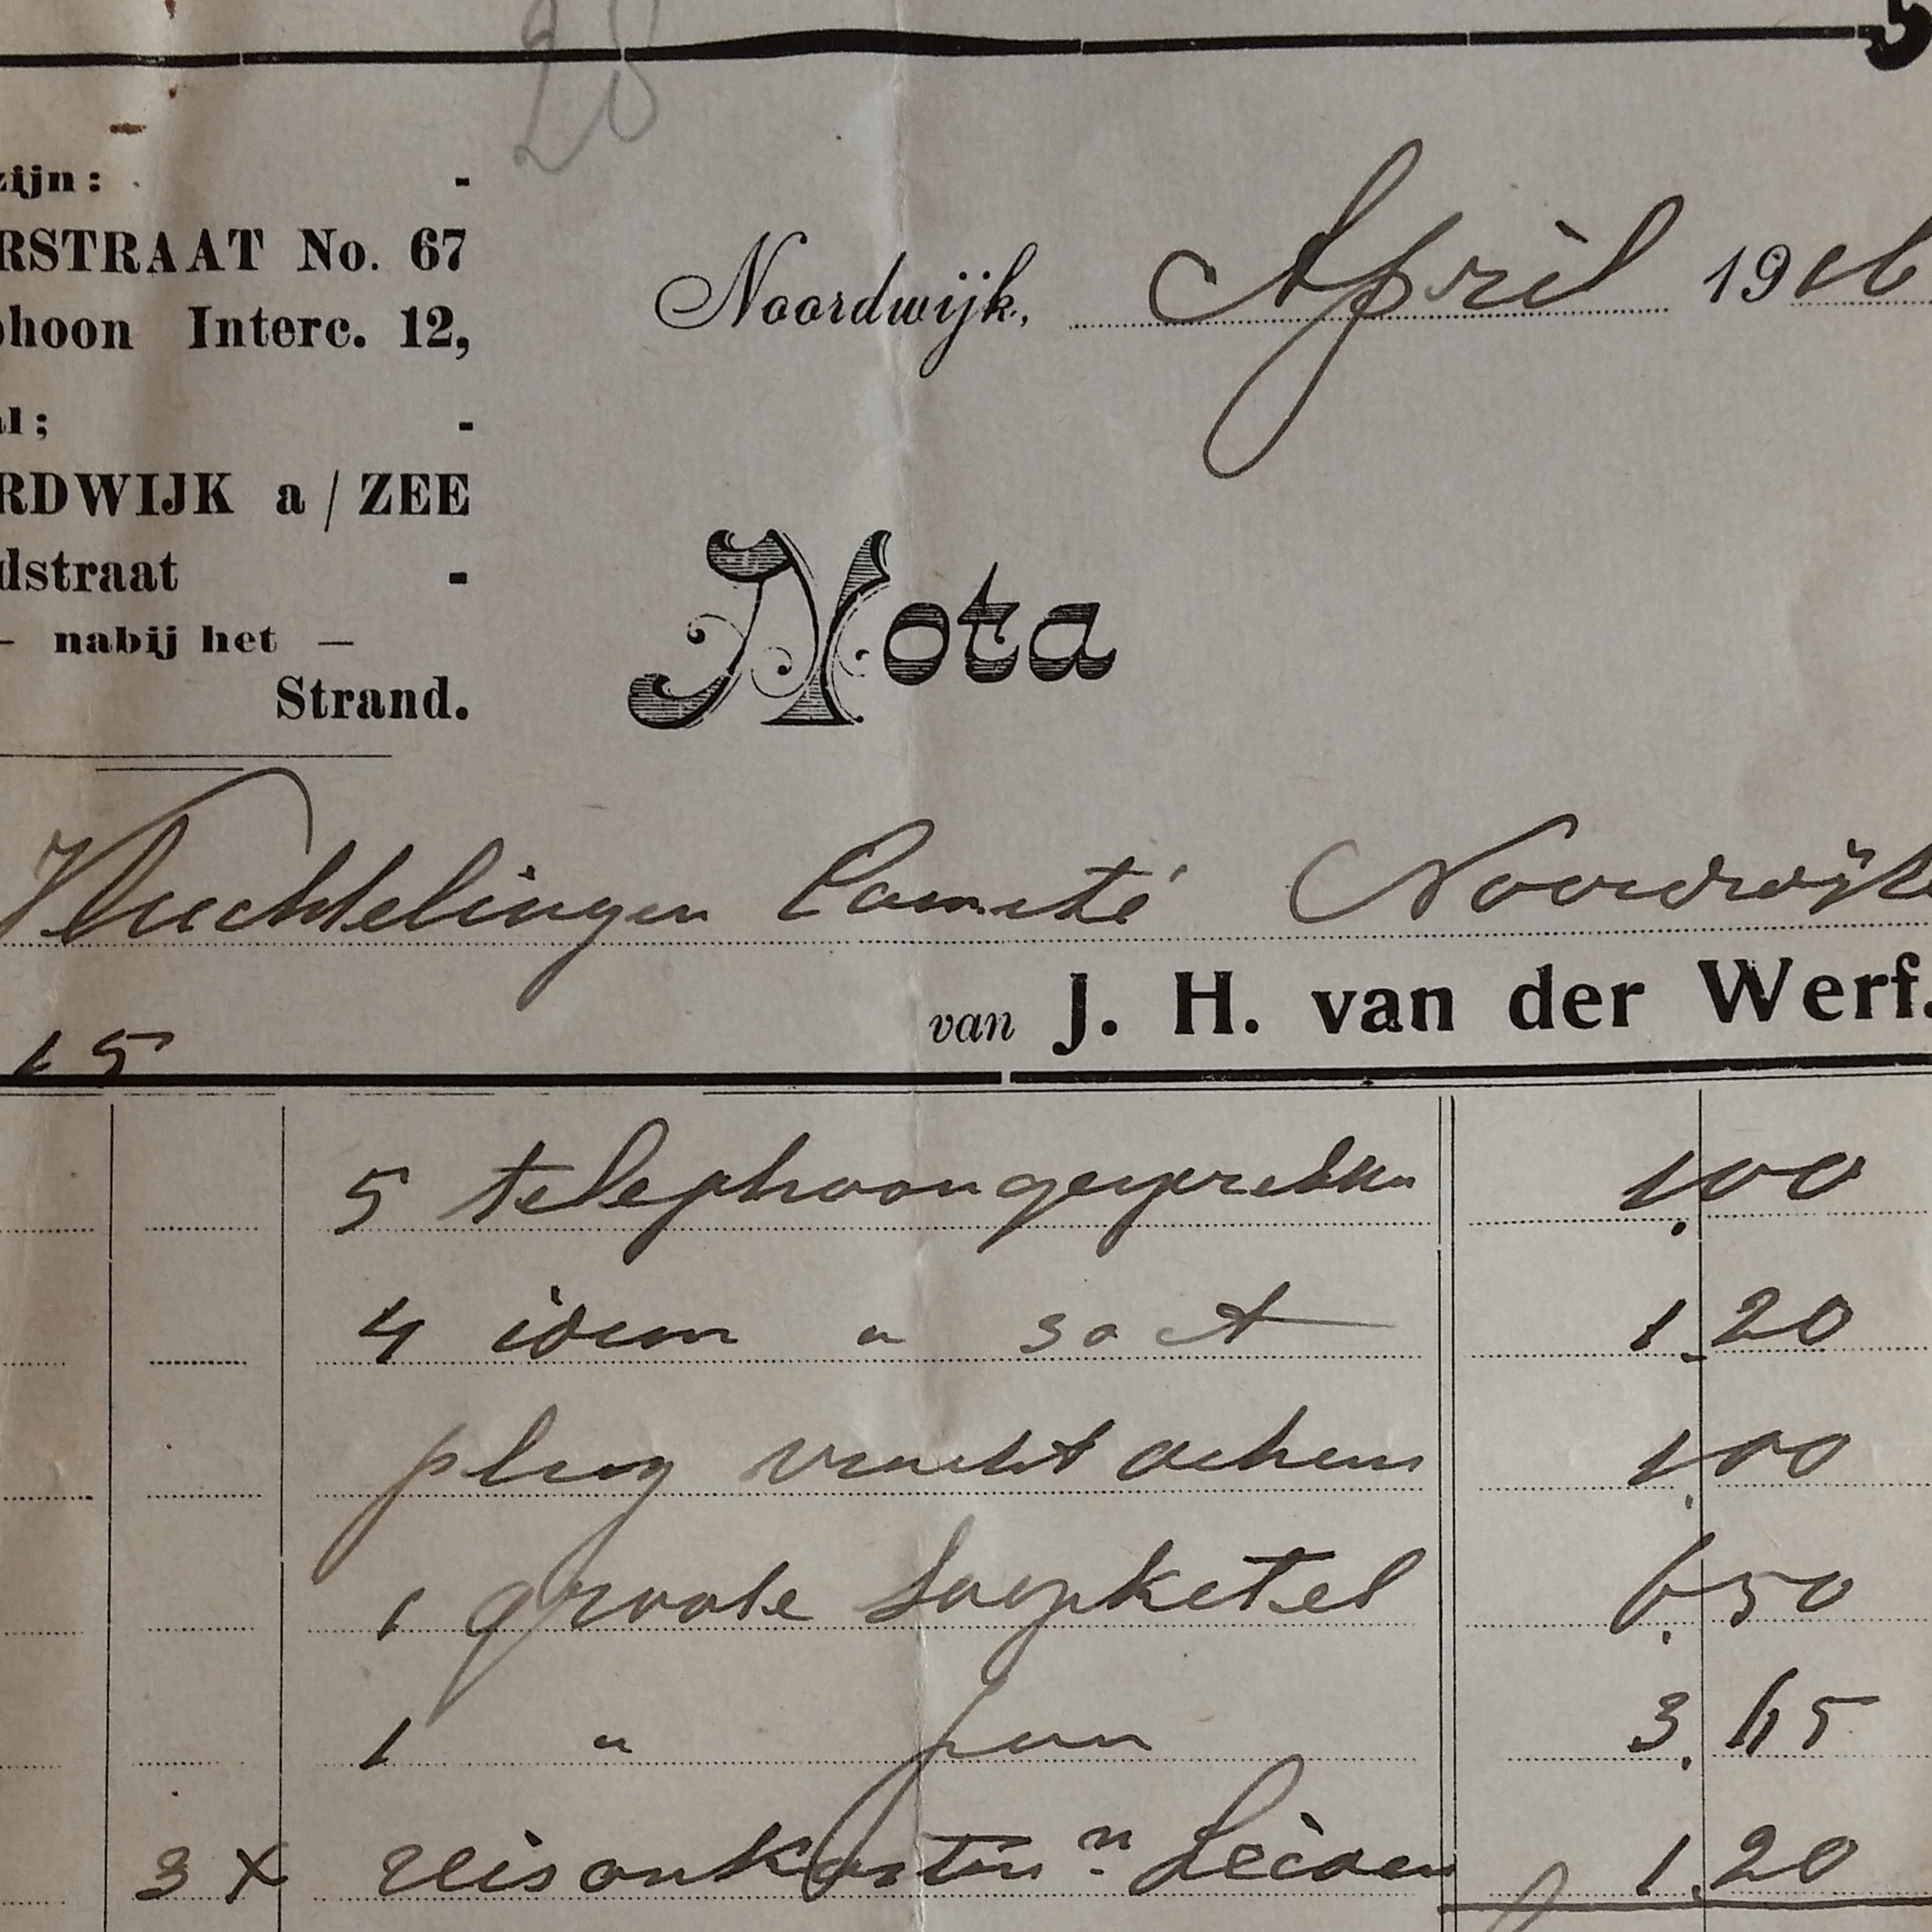 28
zijn: -
RSTRAAT No. 67
phoon Interc. 12,
al; -
RDWIJK a/ZEE
dstraat -
— nabij het —
Strand.
Noordwijk, April 1916
Nota
Vluchtelingen Comité Noordwijk
van J. H. van der Werf.
15
5 telephoongesprekken 1.00
4 idem a 30 ct 1.20
plug 1.00
1 groote soepketel 6.50
1 " pan 3.65
3 x reisonkosten n. Leiden 1.20